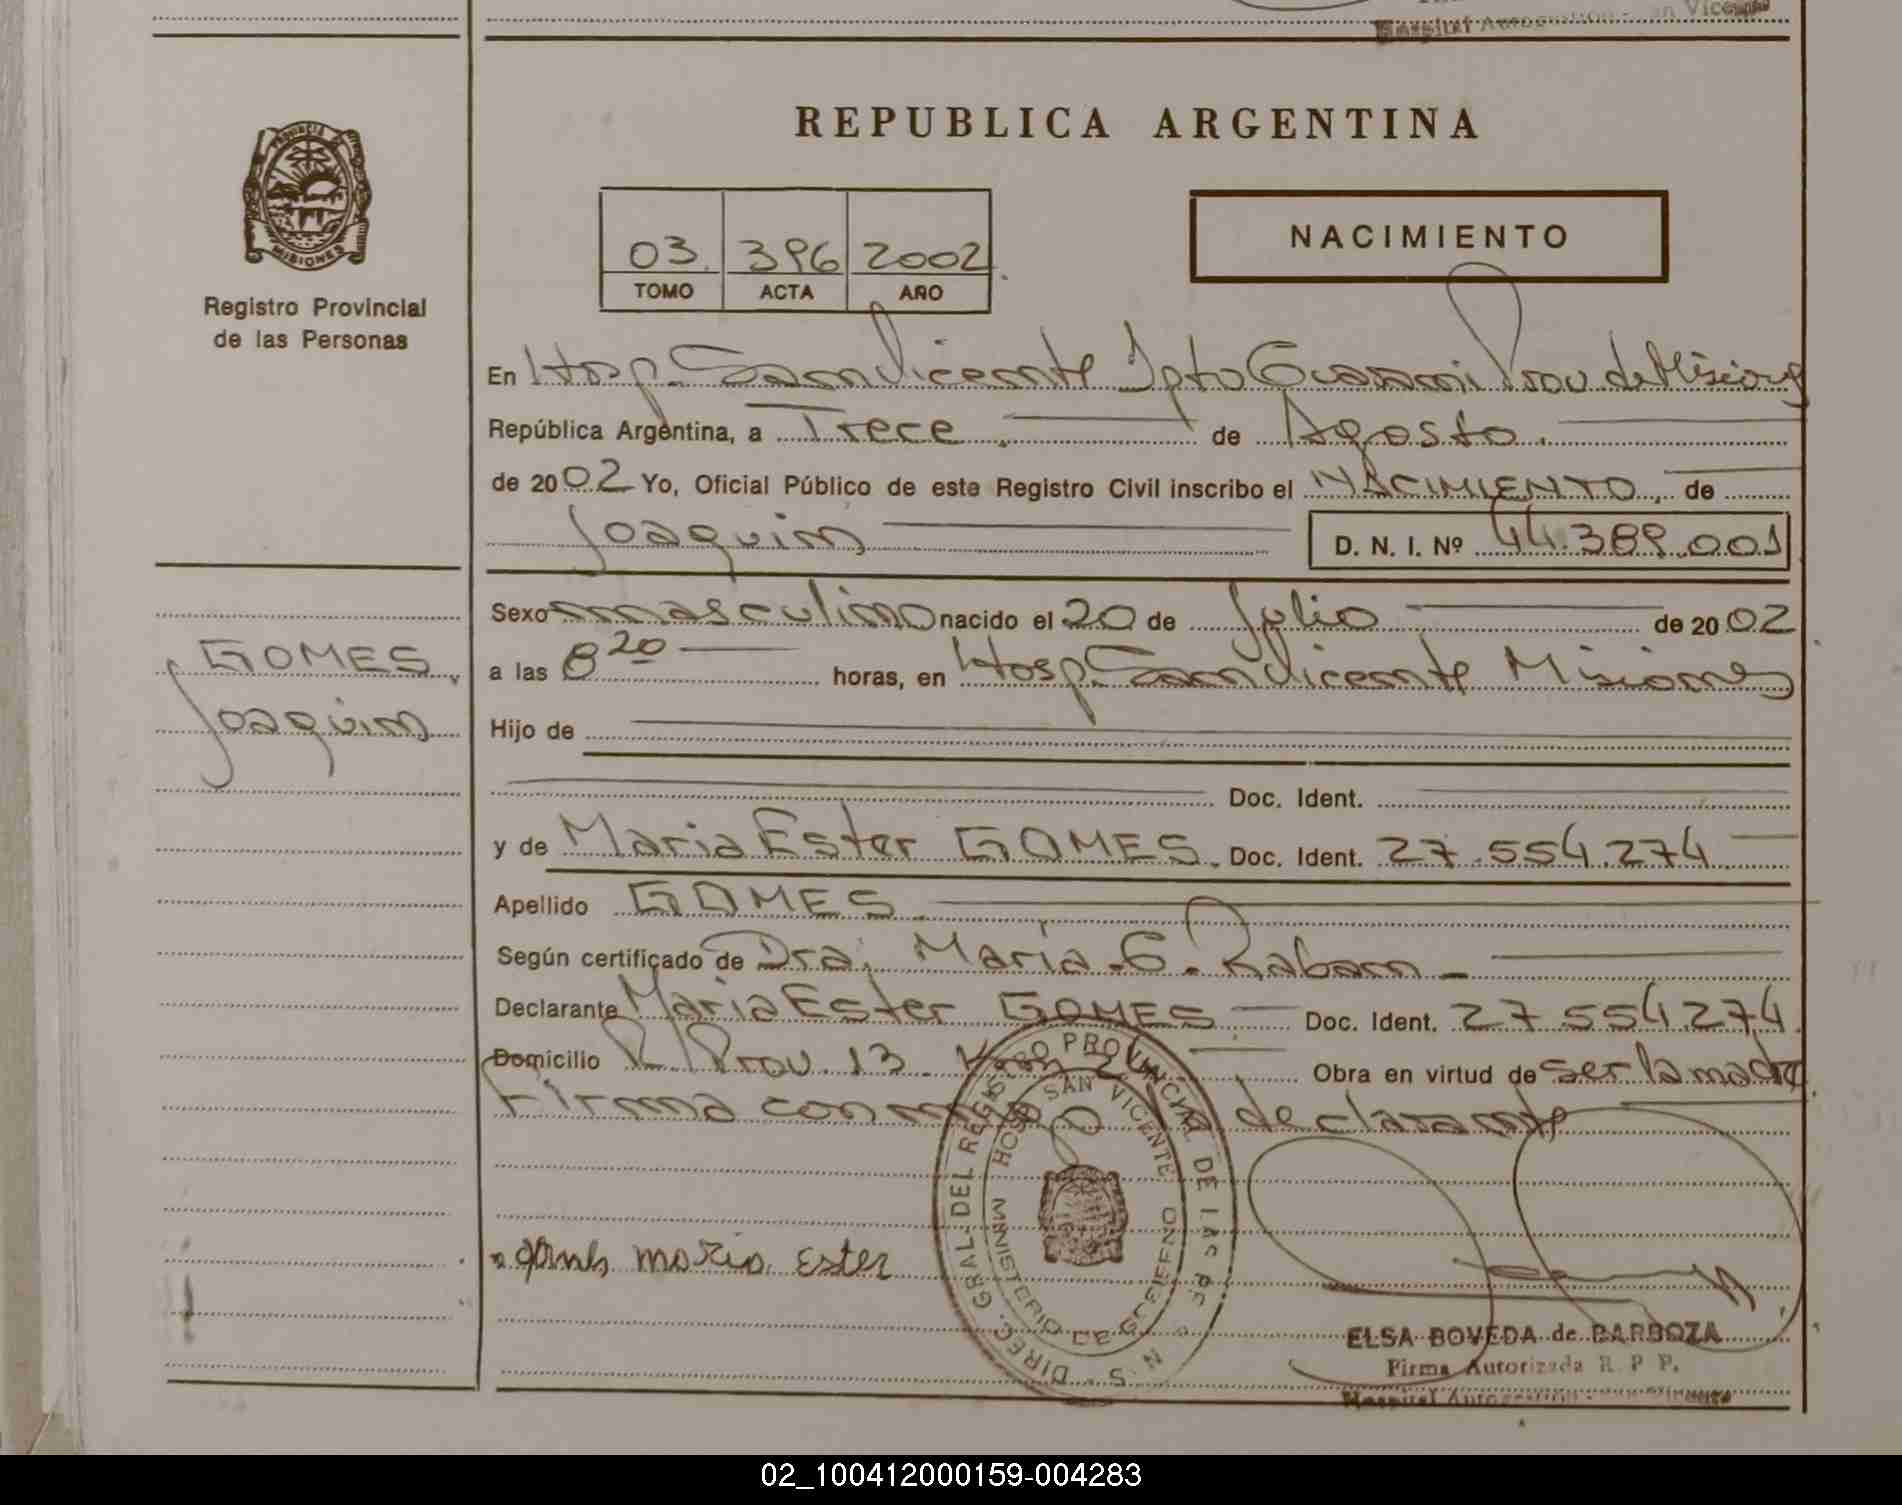 Hospital Autogestión - San Vicente
REPUBLICA ARGENTINA
PROVINCIA DE MISIONES
Registro Provincial
de las Personas
03 396 2002
TOMO ACTA AÑO
NACIMIENTO
En Hosp. San Vicente Dpto Guarani Prov de Misiones
República Argentina, a Trece. de Agosto.
de 2002 Yo, Oficial Público de este Registro Civil inscribo el NACIMIENTO, de
Joaquim D. N. I. Nº 44.389.001
Sexo masculino nacido el 20 de Julio de 2002
a las 8 20 horas, en Hosp. San Vicente Misiones
GOMES,
Joaquim
Hijo de
Doc. Ident.
y de Maria Ester GOMES. Doc. Ident. 27.554.274
Apellido GOMES.
Según certificado de Dra. Maria. G. Raban
Declarante Maria Ester GOMES Doc. Ident. 27 554 274.
Domicilio R. Prov. 13. Km 2 Obra en virtud de ser la madre
Firma conmigo declarante
DIREC. GRAL. DEL REGISTRO PROVINCIAL DE LAS PERS
HOSP SAN VICENTE
MINISTERIO DE GOBIERNO
Gomes maria Ester
ELSA BOVEDA de BARBOZA
Firma Autorizada R. P. P.
Hospital Autogestión - San Vicente
02_100412000159-004283